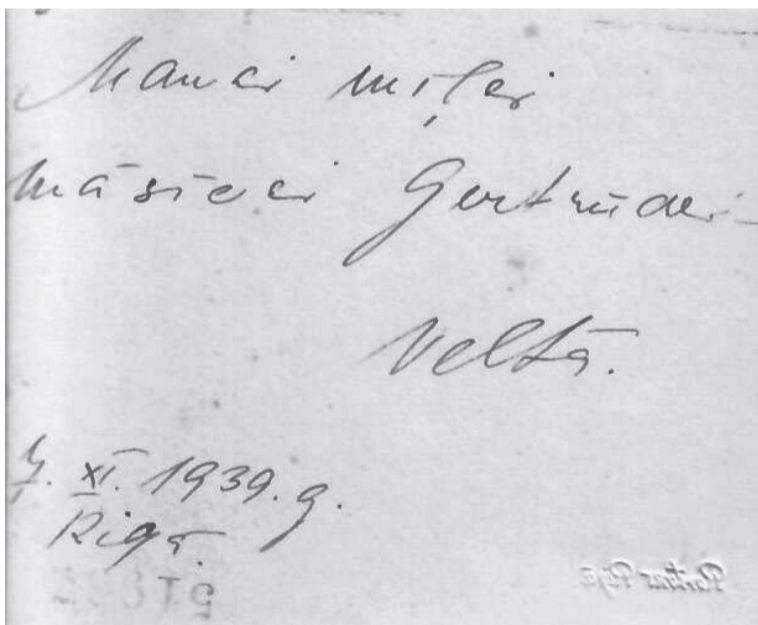 Manai mīļai
māsiņai Gertrūdei
Velta.
7. XI. 1939. g.
Rīgā.